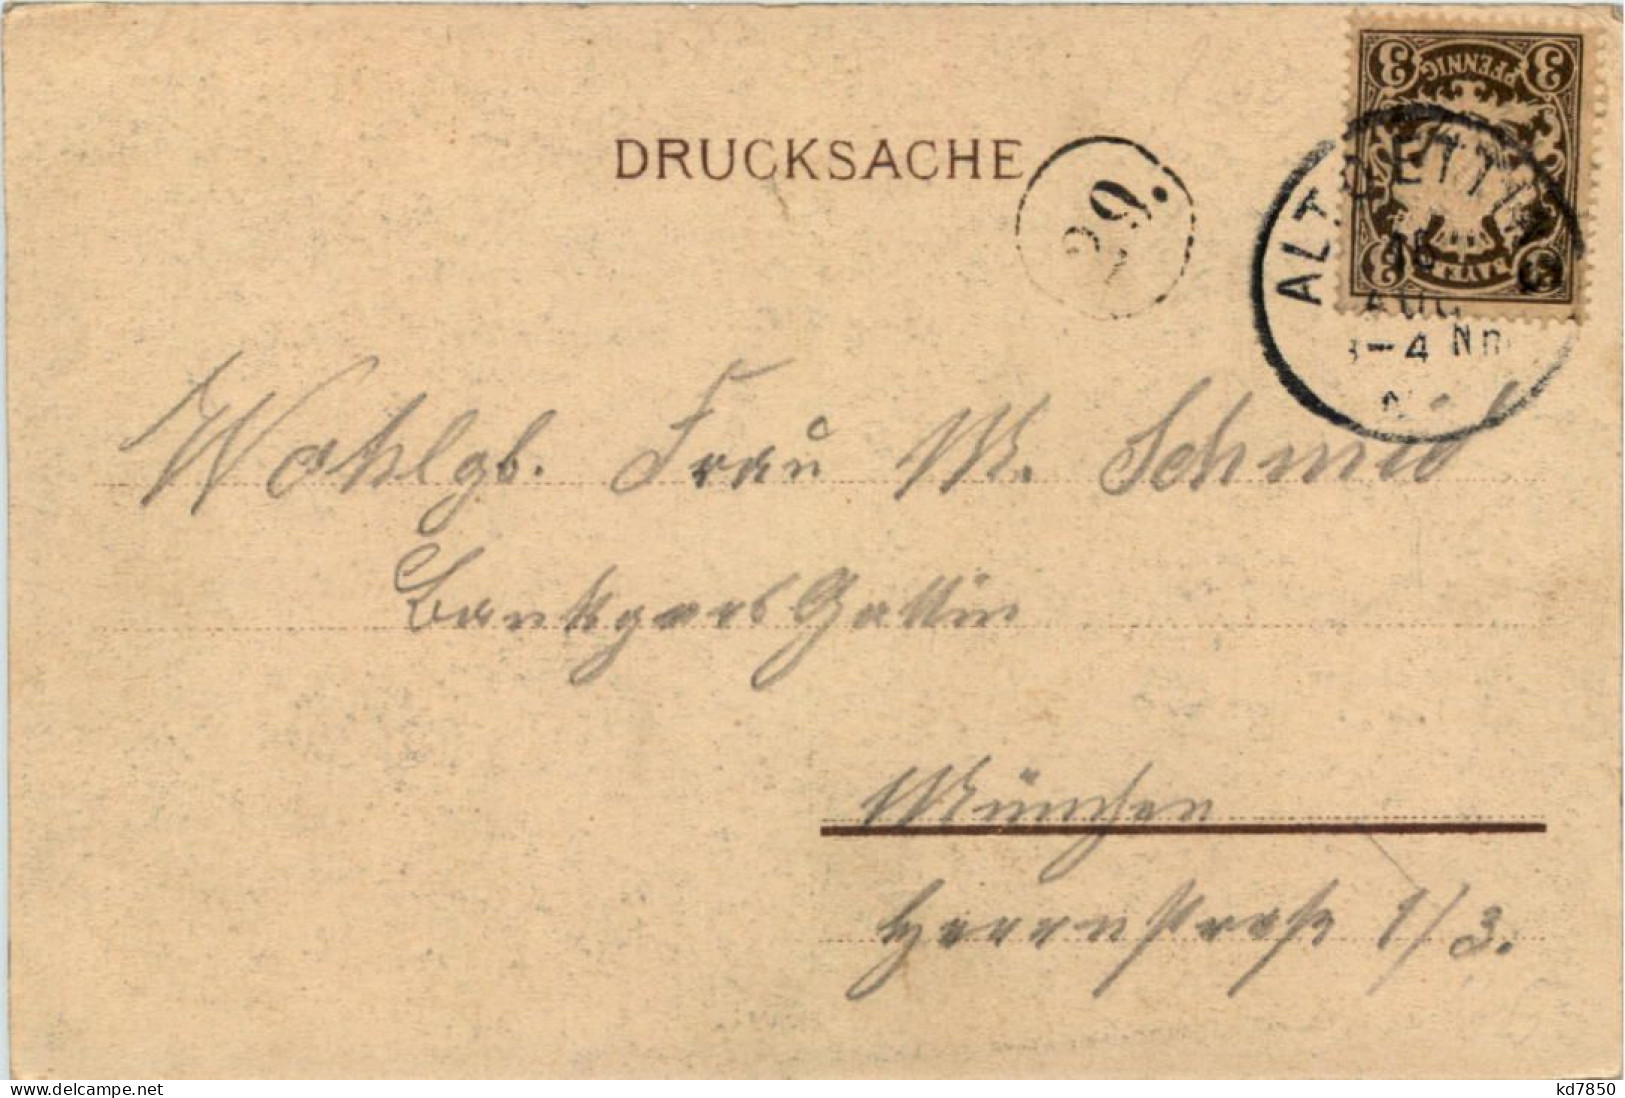 DRUCKSACHE
29.
3 PFENNIG 3
3 BAYERN 3
ALTOETTING
15
AUG
3-4 Nm
Wohlgb. Frau M. Schmid
Bankgers Gattin
München
Herrenstraße 1/3.
www.delcampe.net
kd7850